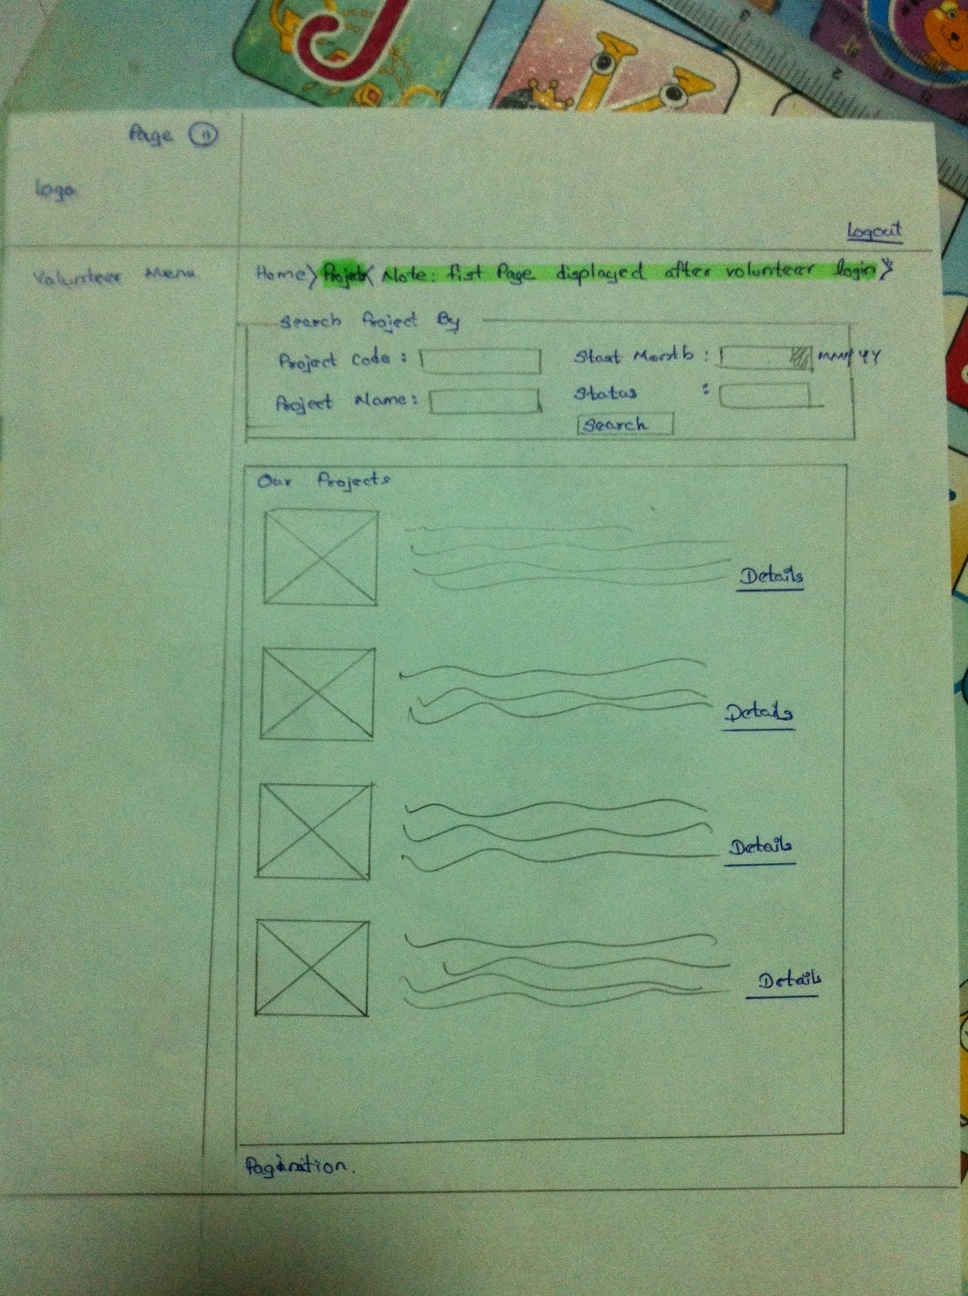 Page 11
Logo
Logout
Volunteer Menu
Home> Project< Note: fist Page displayed after volunteer login>
Search Project By
Project Code :
Start Month :
MM/YY
Project Name:
Status :
Search
Our Projects
Details
Details
Details
Details
Pagination.